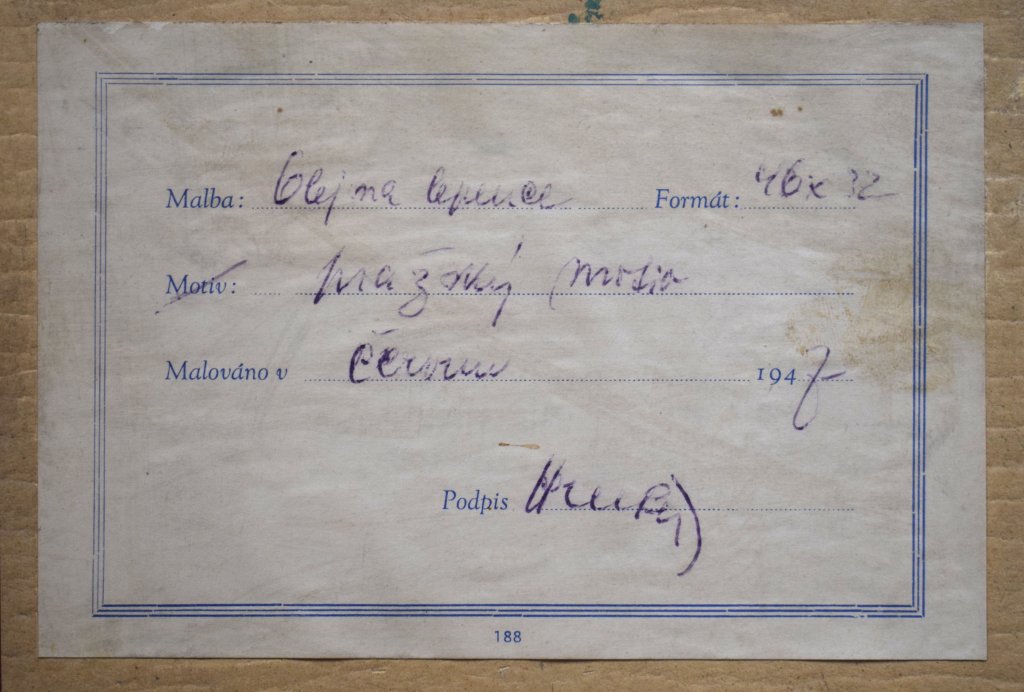 Malba: Olej na lepence Formát: 46 x 32
Motiv: pražský motiv
Malováno v červnu 1947
Podpis
188